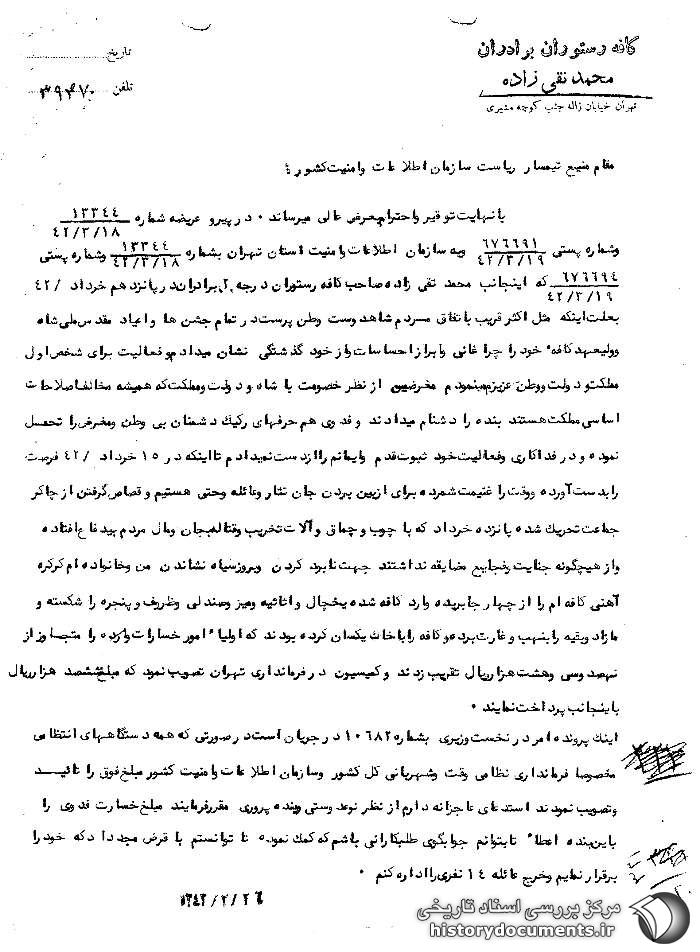 کافه رستوران برادران
محمد نقی زاده
تهران خیابان ژاله جنب کوچه مشیری
تاریخ
تلفن ۳۹۴۷۰
مقام منیع تیمسار ریاست سازمان اطلاعات وامنیت کشور :
با نهایت توقیر واحترام بعرض عالی میرساند ۰ در پیرو عریضه شماره ۱۳۳۴۴ ۴۲/۳/۱۸
وشماره پستی ۶۷۶۶۹۱ ۴۲/۳/۱۹ وبه سازمان اطلاعات وامنیت استان تهران بشماره ۱۳۳۴۴ ۴۲/۳/۱۸ وشماره پستی
۶۷۶۶۹۴ ۴۲/۳/۱۹ که اینجانب محمد تقی زاده صاحب کافه رستوران درجه ۲ برادران در پانزدهم خرداد /۴۲
بعلت اینکه مثل اکثر قریب باتفاق مردم شاهدوست وطن پرست در تمام جشن ها واعیاد مقدس ملی شاه
وولیعهد کافه خود را چراغانی وابراز احساسات واز خود گذشتگی نشان میدادم وفعالیت برای شخص اول
مملکت و دولت ووطن عزیزم مینمودم مغرضین از نظر خصومت با شاه و دولت ومملکت که همیشه مخالف اصلاحات
اساسی مملکت هستند بنده را دشنام میدادند و فدوی هم حرفهای رکیک دشمنان بی وطن ومغرض را تحمل
نموده و در فداکاری وفعالیت خود ثبوت قدم وایمانم را از دست نمیدادم تا اینکه در ۱۵ خرداد /۴۲ فرصت
را بدست آورده ووقت را غنیمت شمرده برای ازبین بردن جان نثار وعائله وحتی هستیم و قصاص گرفتن از چاکر
جماعت تحریک شده پانزده خرداد که با چوب وچماق وآلات تخریب وقتاله بجان ومال مردم بیدفاع افتاده
واز هیچگونه جنایت وفجایع مضایقه نداشتند جهت نابود کردن وبروز سیاه نشاندن من وخانواده ام کرکره
آهنی کافه ام را از چهار جا بریده وارد کافه شده یخچال واثاثیه ومیز وصندلی وظروف و پنجره را شکسته و
مازاد وبقیه را بنهب و غارت برده و کافه را با خاک یکسان کرده بودند که اولیاء امور خسارات وارده را متجاوز از
نهصد وسی وهشت هزار ریال تقریب زدند و کمیسیون در فرمانداری تهران تصویب نمود که مبلغ ششصد هزار ریال
باینجانب پرداخت نمایند ۰
اینک پرونده امر در نخست وزیری بشماره ۱۰۶۸۲ در جریان است در صورتی که همه دستگاههای انتظامی
مخصوصا فرمانداری نظامی وقت وشهربانی کل کشور وسازمان اطلاعات وامنیت کشور مبلغ فوق را تائید
وتصویب نمودند استدعای عاجزانه دارم از نظر نوعدوستی وبنده پروری مقرر فرمایند مبلغ خسارت فدوی را
باین بنده اعطاء تا بتوانم جوابگوی طلبکارانی باشم که کمک نموده تا توانستم با قرض مجددا دکه خود را
برقرار نمایم وخرج عائله ۱۴ نفری را اداره کنم ۰
۱۳۴۳/۲/۲۶
مرکز بررسی اسناد تاریخی
historydocuments.ir